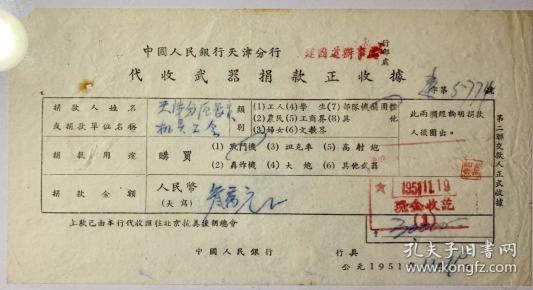 中國人民銀行天津分行
建國道辦事處
行部處
代收武器捐款正收據
字第5-771號
捐款人姓名
或捐款單位名稱
天津分區
工會
類別
(1)工人(4)學生(7)部隊機關團體
(2)農民(5)工商界(8)其他
(3)婦女(6)文教界
此兩欄經詢明捐款
人後圈出。
捐款用途
購買
(1)戰鬥機(3)坦克車(5)高射炮
(2)轟炸機(4)大炮(6)其他武器
捐款金額
人民幣
(大寫)
叁萬元
1951.11.19
現金收訖
(1)
30000
上款已由本行代收匯往北京抗美援朝總會
中國人民銀行
行具
公元1951年
第二聯交款人正式收據
孔夫子旧书网
www.kongfz.com